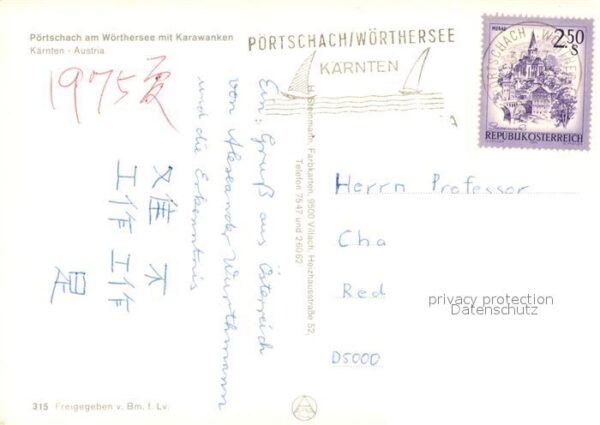 Pörtschach am Wörthersee mit Karawanken
Kärnten - Austria
1975夏
PÖRTSCHACH/WÖRTHERSEE
KÄRNTEN
MURAU
2.50
S
REPUBLIK ÖSTERREICH
Ein Gruß aus Österreich
von Alexander Wurthmann
und die Erkenntnis
工作 工作
是
H. Steenmach, Farbkarten, 9500 Villach, Heizhausstraße 52,
Telefon 7547 und 26062
Herrn Professor
Cha
Red
D5000
privacy protection
Datenschutz
315 Freigegeben v. Bm. f. Lv.